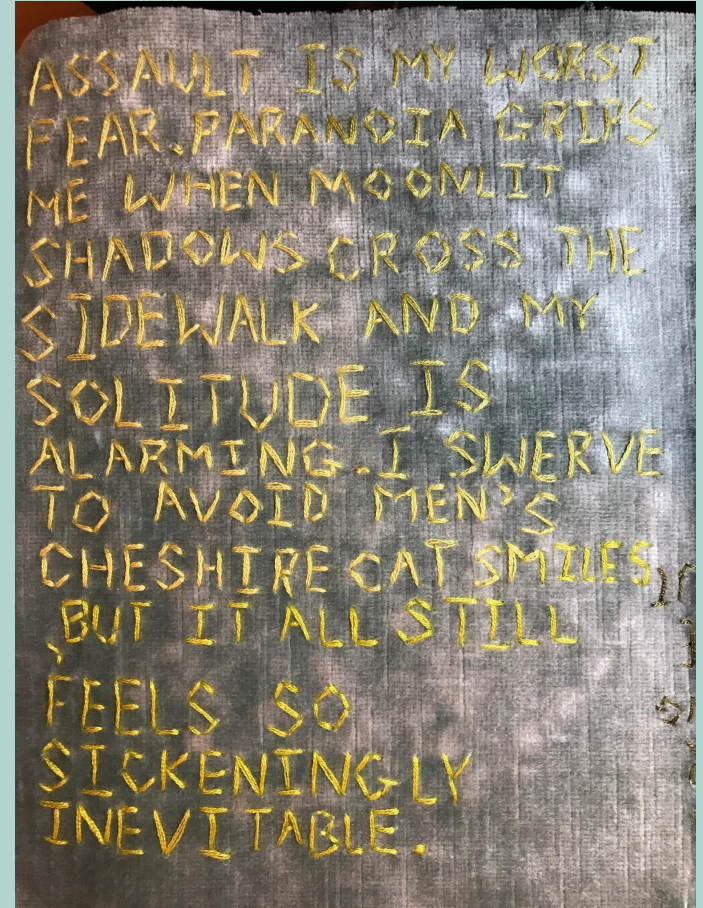 ASSAULT IS MY WORST
FEAR. PARANOIA GRIPS
ME WHEN MOONLIT
SHADOWS CROSS THE
SIDEWALK AND MY
SOLITUDE IS
ALARMING. I SWERVE
TO AVOID MEN'S
CHESHIRE CAT SMILES
, BUT IT ALL STILL
FEELS SO
SICKENINGLY
INEVITABLE.